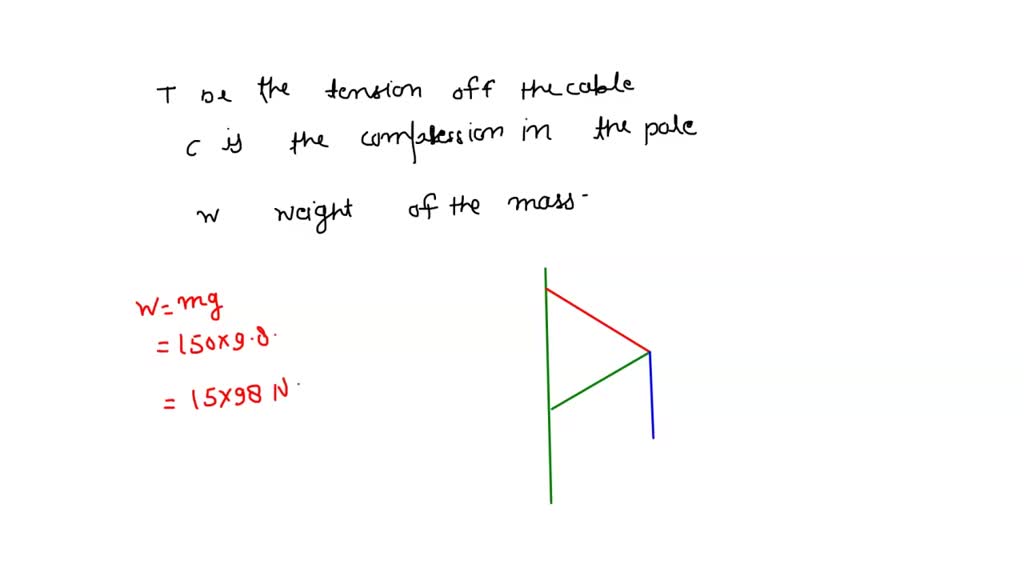 T be the tension off the cable
C is the compression in the pole
W weight of the mass
W = mg
= 150 x 9.8.
= 15 x 98 N